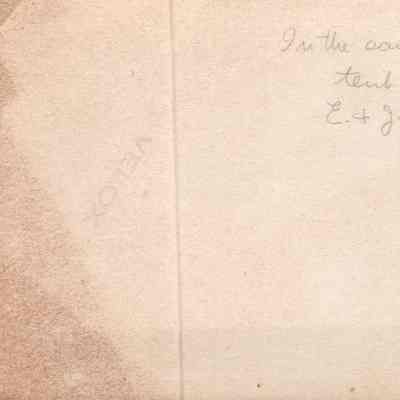 In the
tent
E. & J.
VELOX